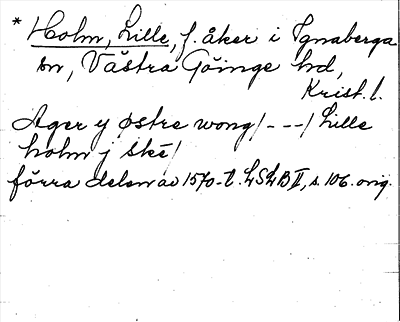 * Holm, Lille, f. åker i Ignaberga
sn, Västra Göinge hd,
Krist. l.
Ager y østre wong/---/Lille
holm j ske/
förra delen av 1570-t. LSLB II, s. 106. orig.